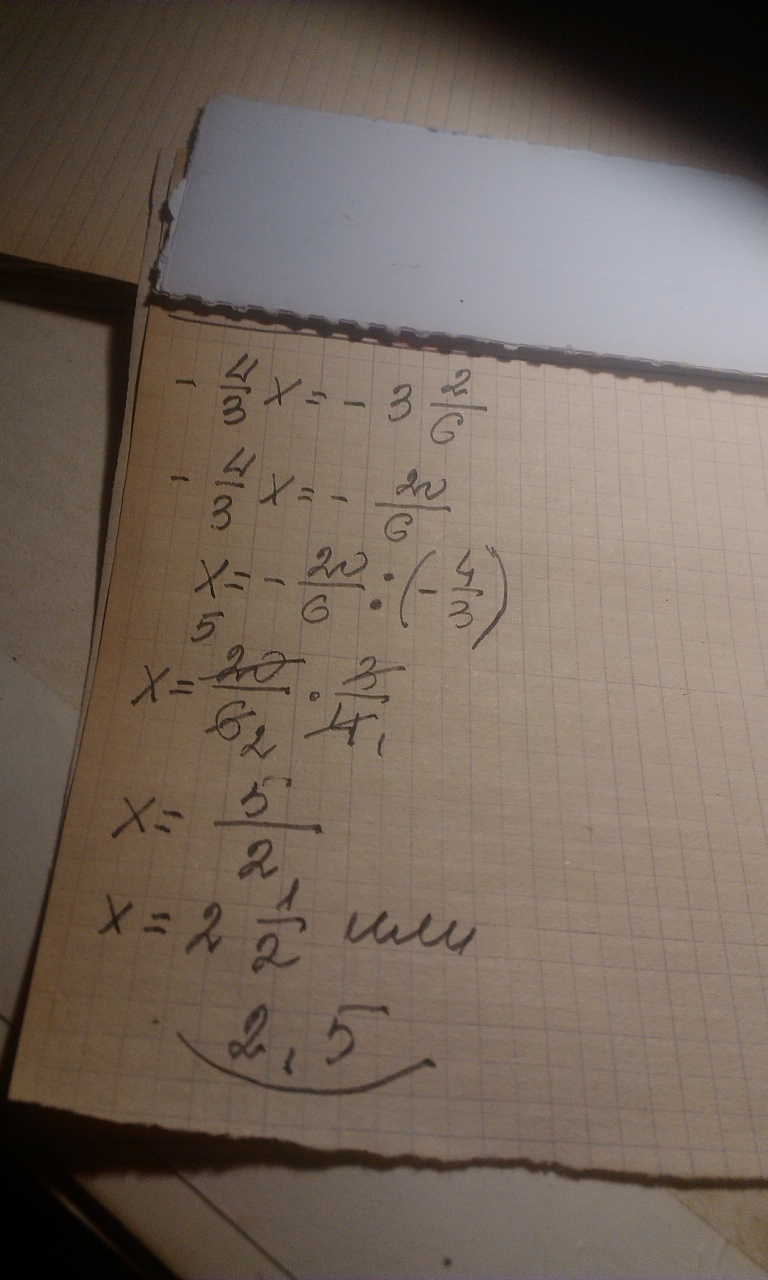 - 4/3 x = - 3 2/6
- 4/3 x = - 20/6
x = - 20/6 : (- 4/3)
5
x = 20/6 2 · 3/4 1
x = 5/2
x = 2 1/2 или
2,5